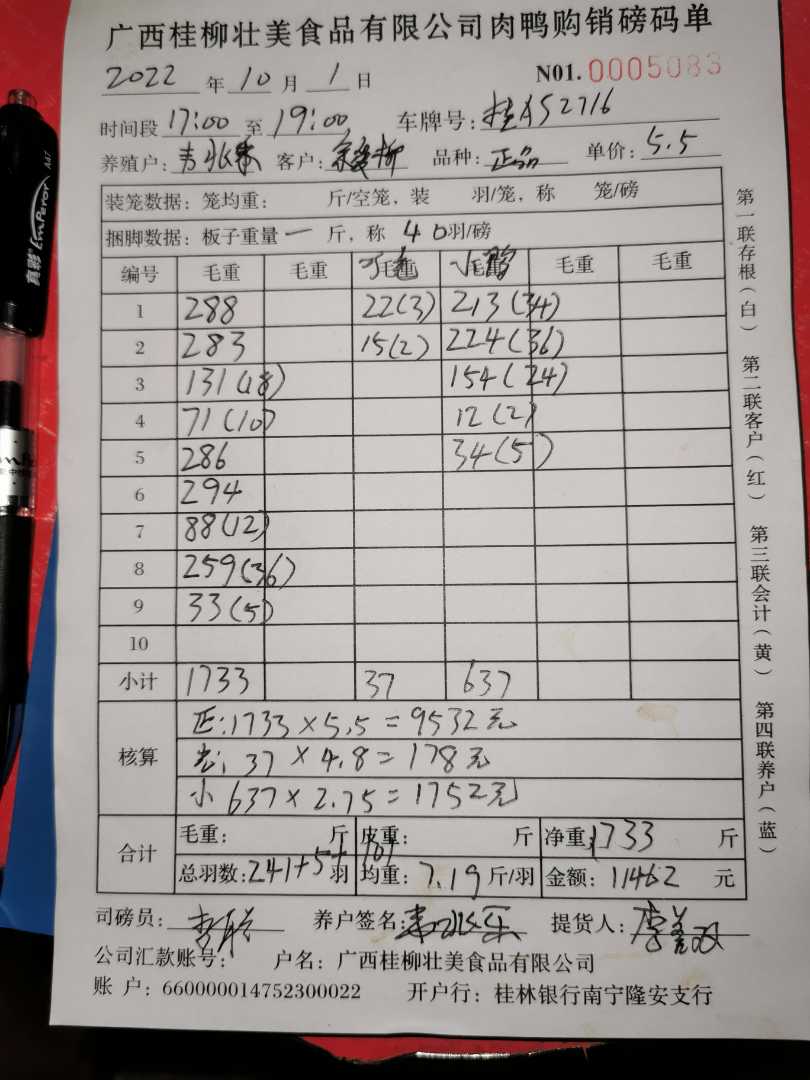 广西桂柳壮美食品有限公司肉鸭购销磅码单
2022 年 10 月 1 日 N01. 0005083
时间段 17:00 至 19:00 车牌号: 桂AS2716
养殖户: 客户: 品种: 正品 单价: 5.5
装笼数据: 笼均重: 斤/空笼, 装 羽/笼, 称 笼/磅
捆脚数据: 板子重量 一 斤, 称 40 羽/磅
编号 毛重 毛重 毛重 毛重 毛重 毛重
1 288 22(3) 213(34)
2 283 15(2) 224(36)
3 131(18) 154(24)
4 71(10) 12(2)
5 286 34(5)
6 294
7 88(12)
8 259(36)
9 33(5)
10
小计 1733 37 637
核算
正:1733×5.5=9532元
37×4.8=178元
小 637×2.75=1752元
合计
毛重: 斤 皮重: 斤 净重: 1733 斤
总羽数: 241+5+101 羽 均重: 7.19 斤/羽 金额: 11462 元
司磅员: 养户签名: 提货人:
公司汇款账号: 户名: 广西桂柳壮美食品有限公司
账 户: 660000014752300022 开户行: 桂林银行南宁隆安支行
第一联存根(白) 第二联客户(红) 第三联会计(黄) 第四联养户(蓝)
真彩 Emperor